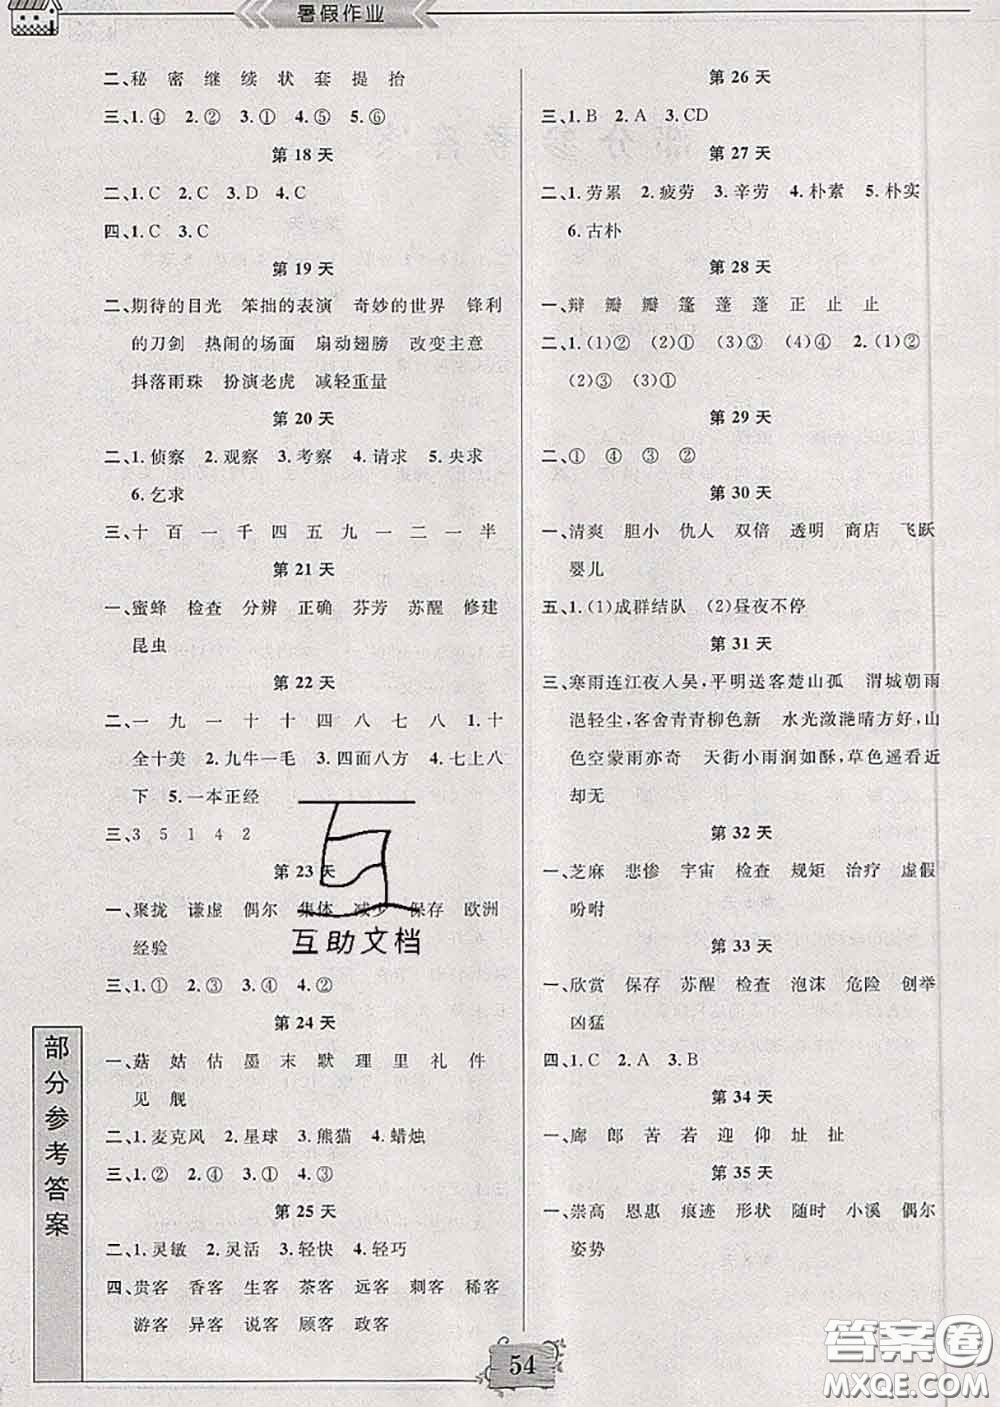 暑假作业
二、秘 密 继 续 状 套 提 抬
三、1.④ 2.② 3.① 4.⑤ 5.⑥
第 18 天
二、1.C 2.C 3.D 4.C
四、1.C 3.C
第 19 天
二、期待的目光 笨拙的表演 奇妙的世界 锋利
的刀剑 热闹的场面 扇动翅膀 改变主意
抖落雨珠 扮演老虎 减轻重量
第 20 天
二、1.侦察 2.观察 3.考察 4.请求 5.央求
6.乞求
三、十 百 一 千 四 五 九 一 二 一 半
第 21 天
一、蜜蜂 检查 分辨 正确 芬芳 苏醒 修建
昆虫
第 22 天
二、一 九 一 十 十 四 八 七 八 1.十
全十美 2.九牛一毛 3.四面八方 4.七上八
下 5.一本正经
三、3 5 1 4 2
第 23 天
一、聚拢 谦虚 偶尔 集体 减少 保存 欧洲
经验
三、1.① 2.③ 3.④ 4.②
第 24 天
一、菇 姑 估 墨 末 默 理 里 礼 件
见 舰
二、1.麦克风 2.星球 3.熊猫 4.蜡烛
三、1.② 2.④ 3.① 4.③
第 25 天
二、1.灵敏 2.灵活 3.轻快 4.轻巧
四、贵客 香客 生客 茶客 远客 刺客 稀客
游客 异客 说客 顾客 政客
第 26 天
三、1.B 2.A 3.CD
第 27 天
二、1.劳累 2.疲劳 3.辛劳 4.朴素 5.朴实
6.古朴
第 28 天
一、辩 瓣 瓣 篷 蓬 蓬 正 止 止
二、1.(1)② (2)① (3)③ (4)④ 2.(1)②
(2)③ (3)①
第 29 天
二、① ④ ③ ②
第 30 天
一、清爽 胆小 仇人 双倍 透明 商店 飞跃
婴儿
五、1.(1)成群结队 (2)昼夜不停
第 31 天
三、寒雨连江夜入吴,平明送客楚山孤 渭城朝雨
浥轻尘,客舍青青柳色新 水光潋滟晴方好,山
色空蒙雨亦奇 天街小雨润如酥,草色遥看近
却无
第 32 天
一、芝麻 悲惨 宇宙 检查 规矩 治疗 虚假
吩咐
第 33 天
一、欣赏 保存 苏醒 检查 泡沫 危险 创举
凶猛
四、1.C 2.A 3.B
第 34 天
一、廊 郎 苦 若 迎 仰 址 扯
第 35 天
一、崇高 恩惠 痕迹 形状 随时 小溪 偶尔
姿势
部分参考答案
互助文档
54
答案圈
MXQE.COM